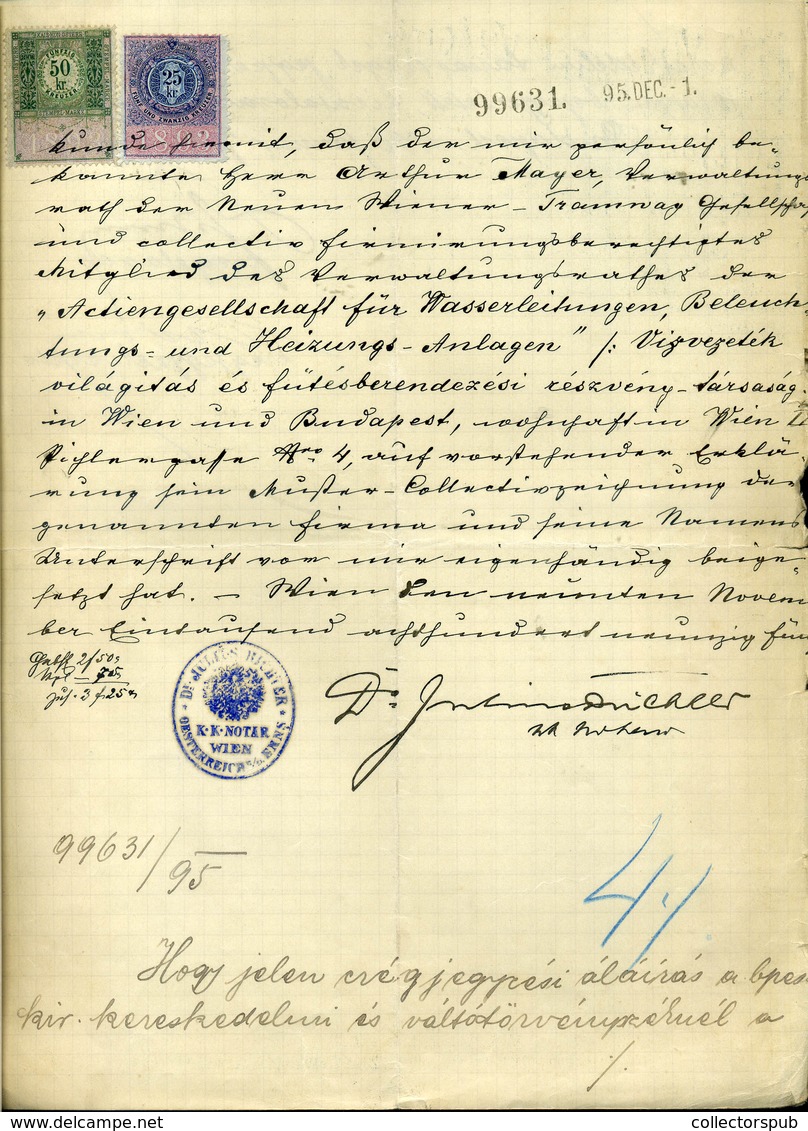 FÜNFZIG
50
kr.
KREUZER
25
kr
FÜNF UND ZWANZIG KREUZER
1893
99631. 95.DEC.-1.
kunde hiemit, daß der mir persönlich be-
kannte Herr Arthur Mayer, Verwaltungs
rath der Neuen Wiener-Tramway Gesellscha
und collectiv firmirungsberechtigtes
Mitglied des Verwaltungsrathes der
„Actiengesellschaft für Wasserleitungen, Beleuch-
tungs- und Heizungs-Anlagen" /: Vizvezeték
világitás és fütésberendezési részvény-társaság
in Wien und Budapest, wohnhaft in Wien
Pichlergasse Nro 4, auf vorstehender Erklä-
rung sein Muster-Collectivzeichnung der
genannten Firma und seine Namens
Unterschrift vor mir eigenhändig beige-
setzt hat. – Wien den neunten Novem
ber Eintausend achthundert neunzig fün
Dr. JULIUS RICHTER
K.K. NOTAR
WIEN
OESTERREICH o/d ENNS
Dr. Julius Richter
99631/95
4./.
Hogy jelen czégjegyzési áláirás a bpes
kir. kereskedelmi és váltótörvényszéknél a
./.
collectorspub